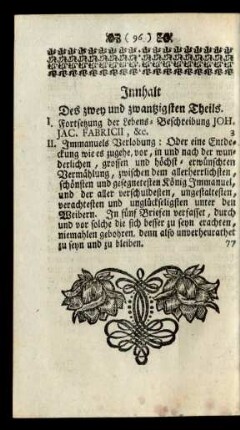 ( 96 )
Innhalt
Des zwey und zwantzigsten Theils.
I. Fortsetzung der Lebens-Beschreibung JOH.
JAC. FABRICII, &c. 3
II. Immanuels Verlobung: Oder eine Entde-
ckung wie es zugehe, vor, in und nach der wun-
derlichen, grossen und höchst-erwünschten
Vermählung, zwischen dem allerherrlichsten,
schönsten und gesegnetesten König Immanuel,
und der aller verschuldesten, ungestaltesten,
verachtesten und unglückseligsten unter den
Weibern. In fünf Briefen verfasset, durch
und vor solche die sich besser zu seyn erachten,
niemahlen gebohren, denn also unverheurathet
zu seyn und zu bleiben. 77